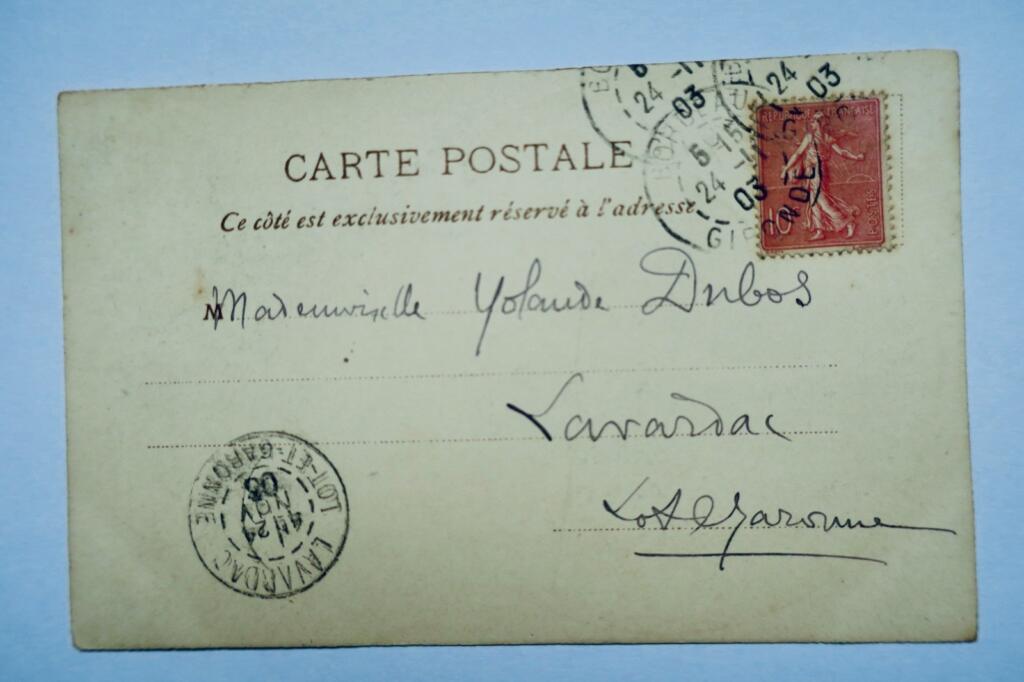 CARTE POSTALE
Ce côté est exclusivement réservé à l'adresse
BORDEAUX
5 15
24 -11
03
GIRONDE
24 -11
03
24
03
RÉPUBLIQUE FRANÇAISE
10
POSTES
M Mademoiselle Yolande Dubos
Lavardac
Lot & Garonne
LAVARDAC
NOV
03
LOT-ET-GARONNE